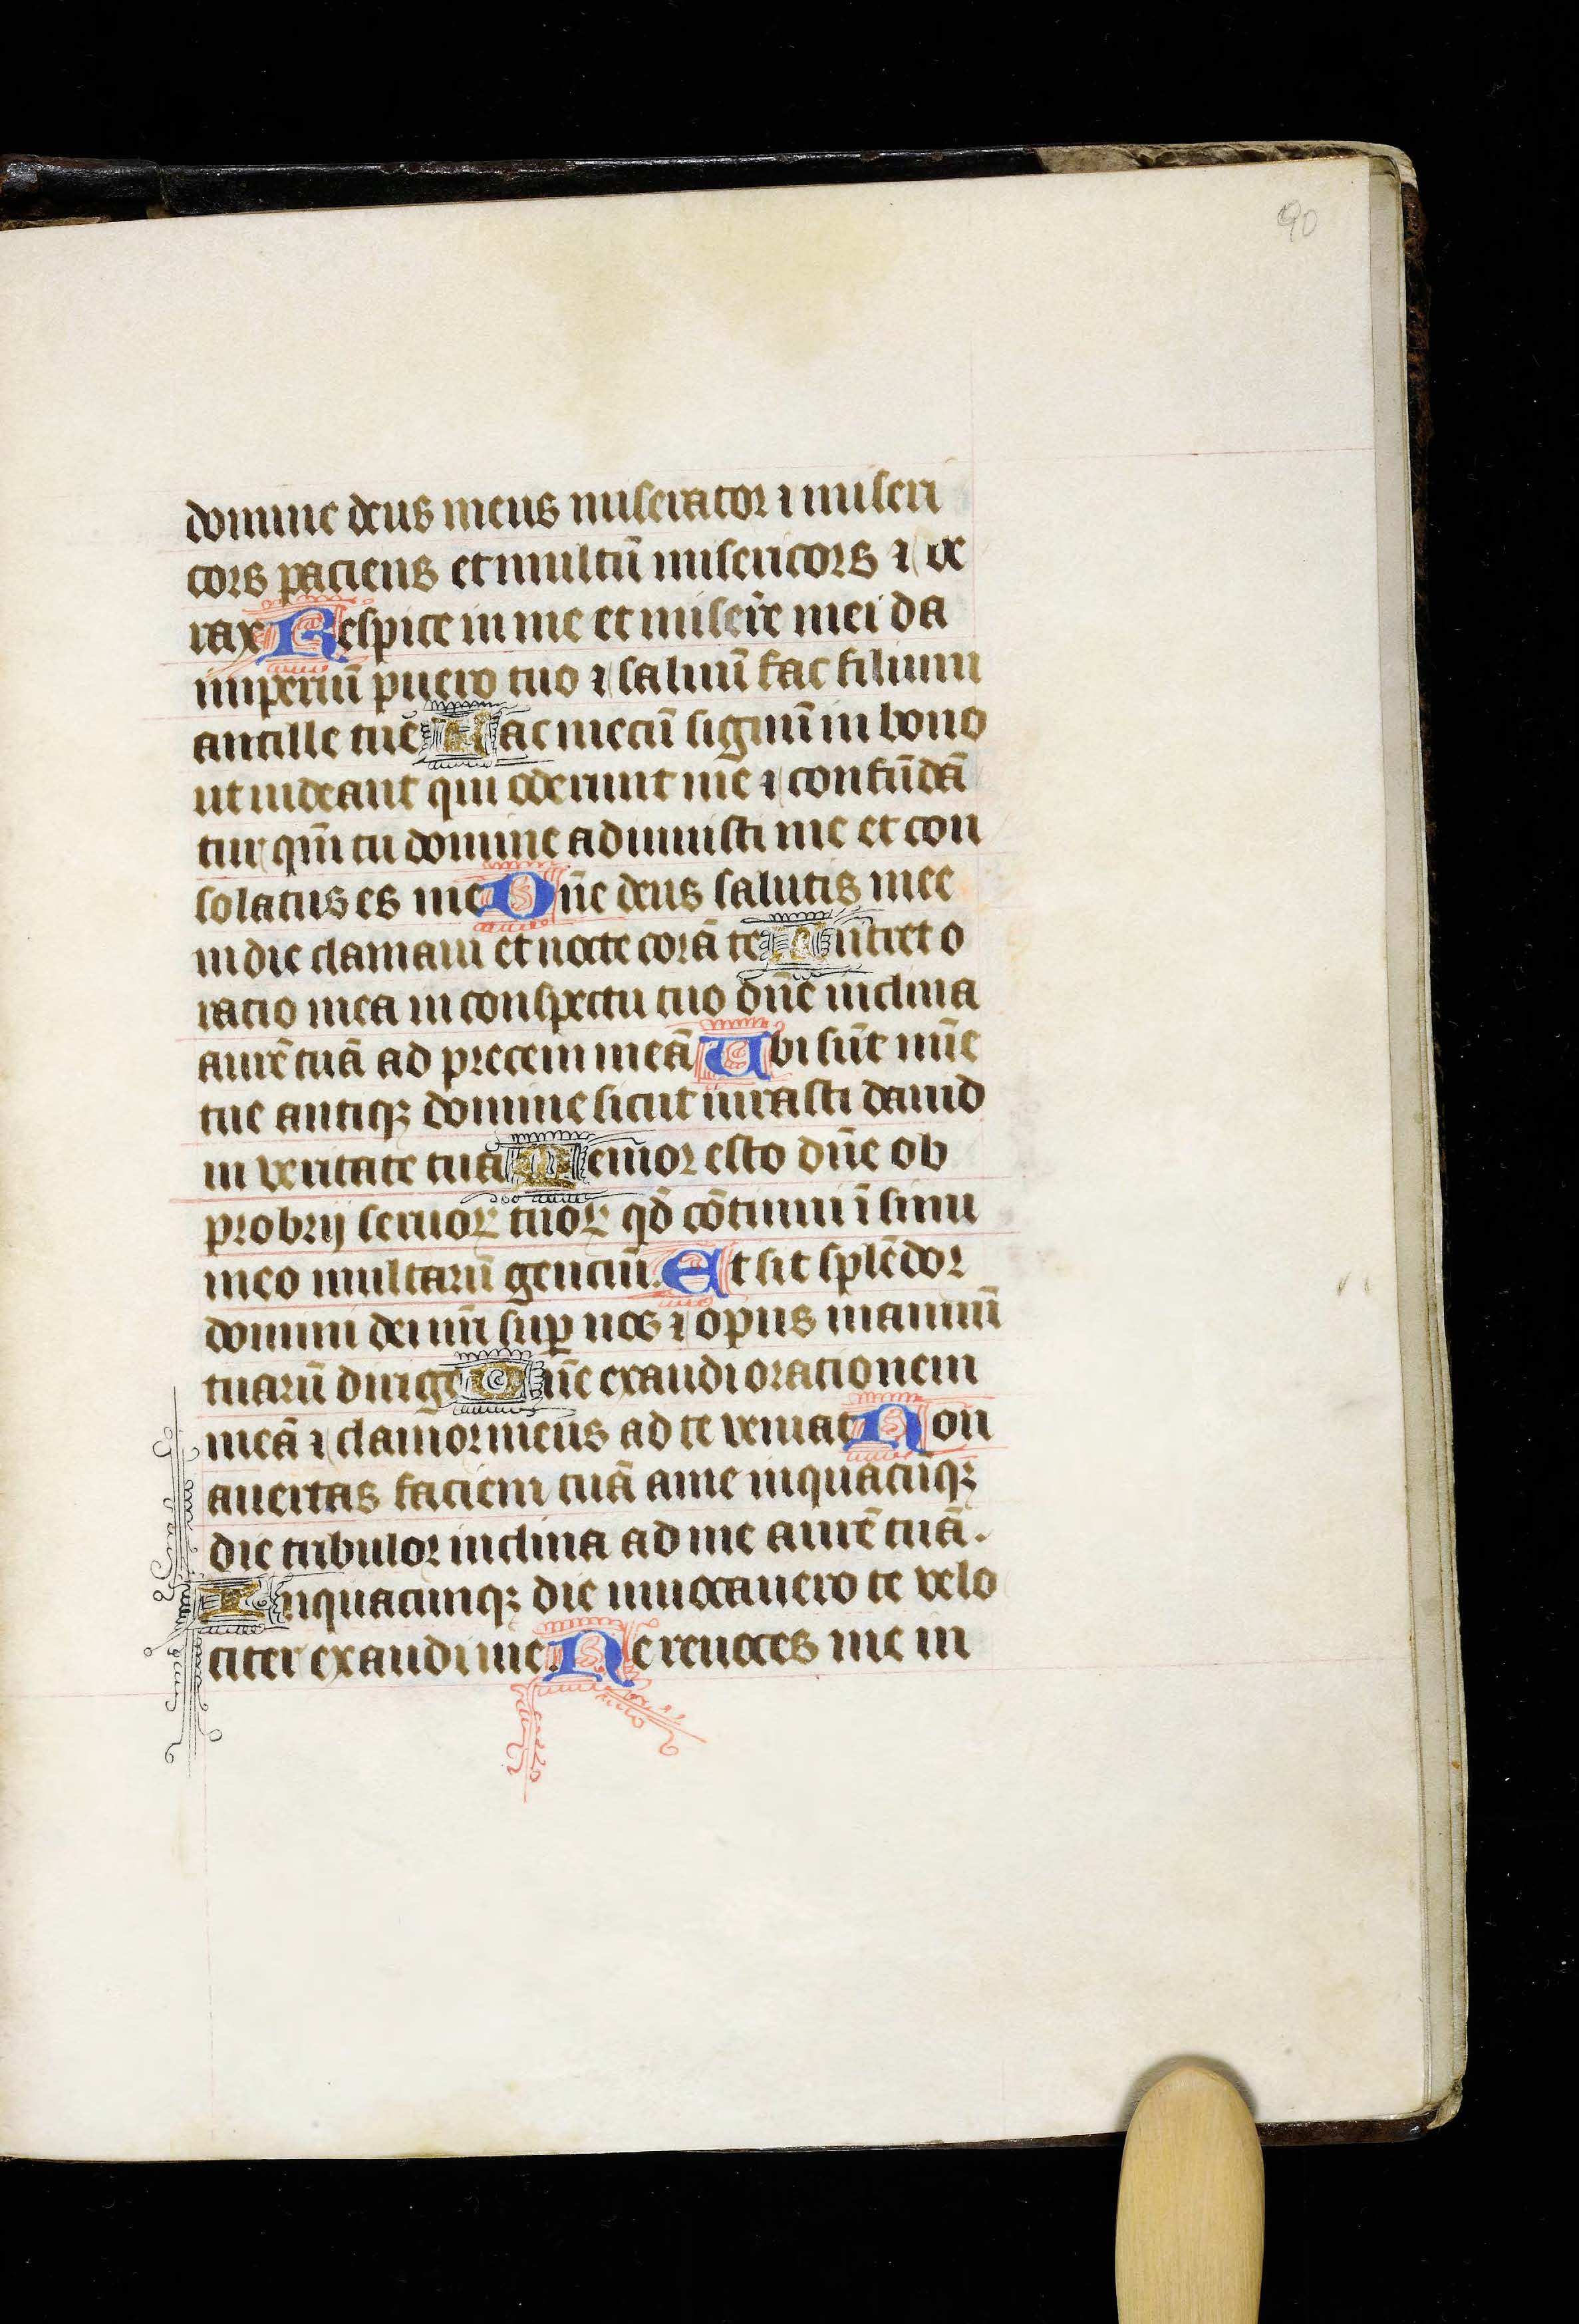 90
domine deus meus miserator ⁊ miseri
cors paciens et multū misericors ⁊ ve
rax Respice in me et miser̄e mei da
imperiū puero tuo ⁊ saluū fac filium
ancille tue Fac mecū signū in bono
ut uideant qui oderunt me ⁊ confūdā
tur qm̄ tu domine adiuuisti me et con
solatus es me Dn̄e deus salutis mee
in die clamaui et nocte corā te Intret o
ratio mea in conspectu tuo dn̄e inclina
aurē tuā ad precem meā Ubi sūt mīe
tue antiqꝫ domine sicut iurasti dauid
in veritate tua Memor esto dn̄e ob
probrij seruoꝝ tuoꝝ qd̄ cōtinui ī sinu
meo multarū genciū. Et sit splēdor
domini dei nr̄i suꝑ nos ⁊ opus manuū
tuarū dirige Dn̄e exaudi orationem
meā ⁊ clamor meus ad te veniat Non
auertas faciem tuā a me in quacūqꝫ
die tribulor inclina ad me aurē tuā.
In quacunqꝫ die inuocauero te velo
citer exaudi me. Ne reuoces me in